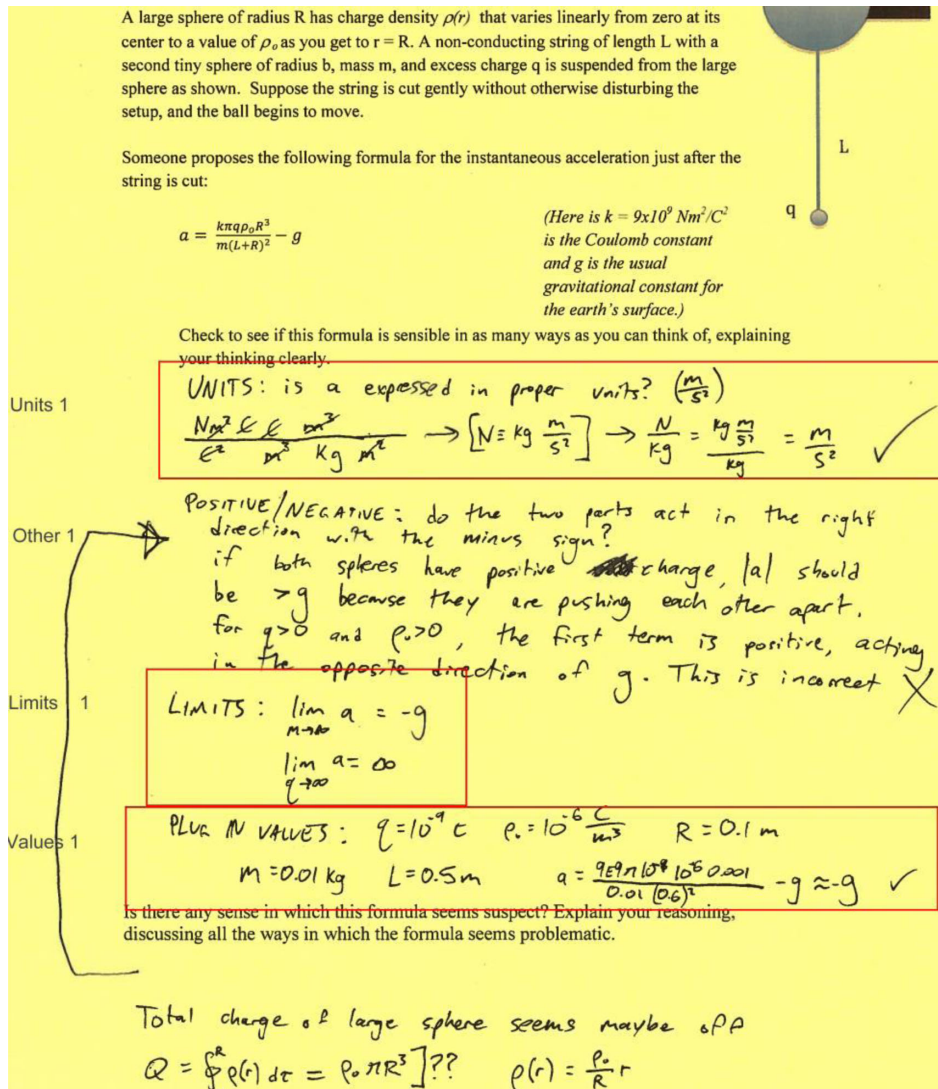 A large sphere of radius R has charge density ρ(r) that varies linearly from zero at its
center to a value of ρₒ as you get to r = R. A non-conducting string of length L with a
second tiny sphere of radius b, mass m, and excess charge q is suspended from the large
sphere as shown. Suppose the string is cut gently without otherwise disturbing the
setup, and the ball begins to move.
L
Someone proposes the following formula for the instantaneous acceleration just after the
string is cut:
q
a = kπqρₒR³/m(L+R)² − g
(Here is k = 9x10⁹ Nm²/C²
is the Coulomb constant
and g is the usual
gravitational constant for
the earth's surface.)
Check to see if this formula is sensible in as many ways as you can think of, explaining
your thinking clearly.
Units 1
UNITS: is a expressed in proper units? (m/s²)
Nm² C C m³ / C² m³ kg m² → [N ≡ kg m/s²] → N/kg = kg m/s² / kg = m/s² ✓
Other 1
POSITIVE/NEGATIVE: do the two parts act in the right
direction with the minus sign?
if both spheres have positive charge, |a| should
be >g because they are pushing each other apart.
for q>0 and ρₒ>0, the first term is positive, acting
in the opposite direction of g. This is incorrect X
Limits 1
LIMITS: lim m→∞ a = -g
lim q→∞ a = ∞
Values 1
PLUG IN VALUES: q=10⁻⁹ C ρₒ=10⁻⁶ C/m³ R=0.1 m
m=0.01 kg L=0.5m a = 9E9π 10⁻⁹ 10⁻⁶ 0.001 / 0.01 (0.6)² - g ≈ -g ✓
Is there any sense in which this formula seems suspect? Explain your reasoning,
discussing all the ways in which the formula seems problematic.
Total charge of large sphere seems maybe off
Q = ∮ᴿ ρ(r) dτ = ρₒπR³]?? ρ(r) = ρₒ/R r